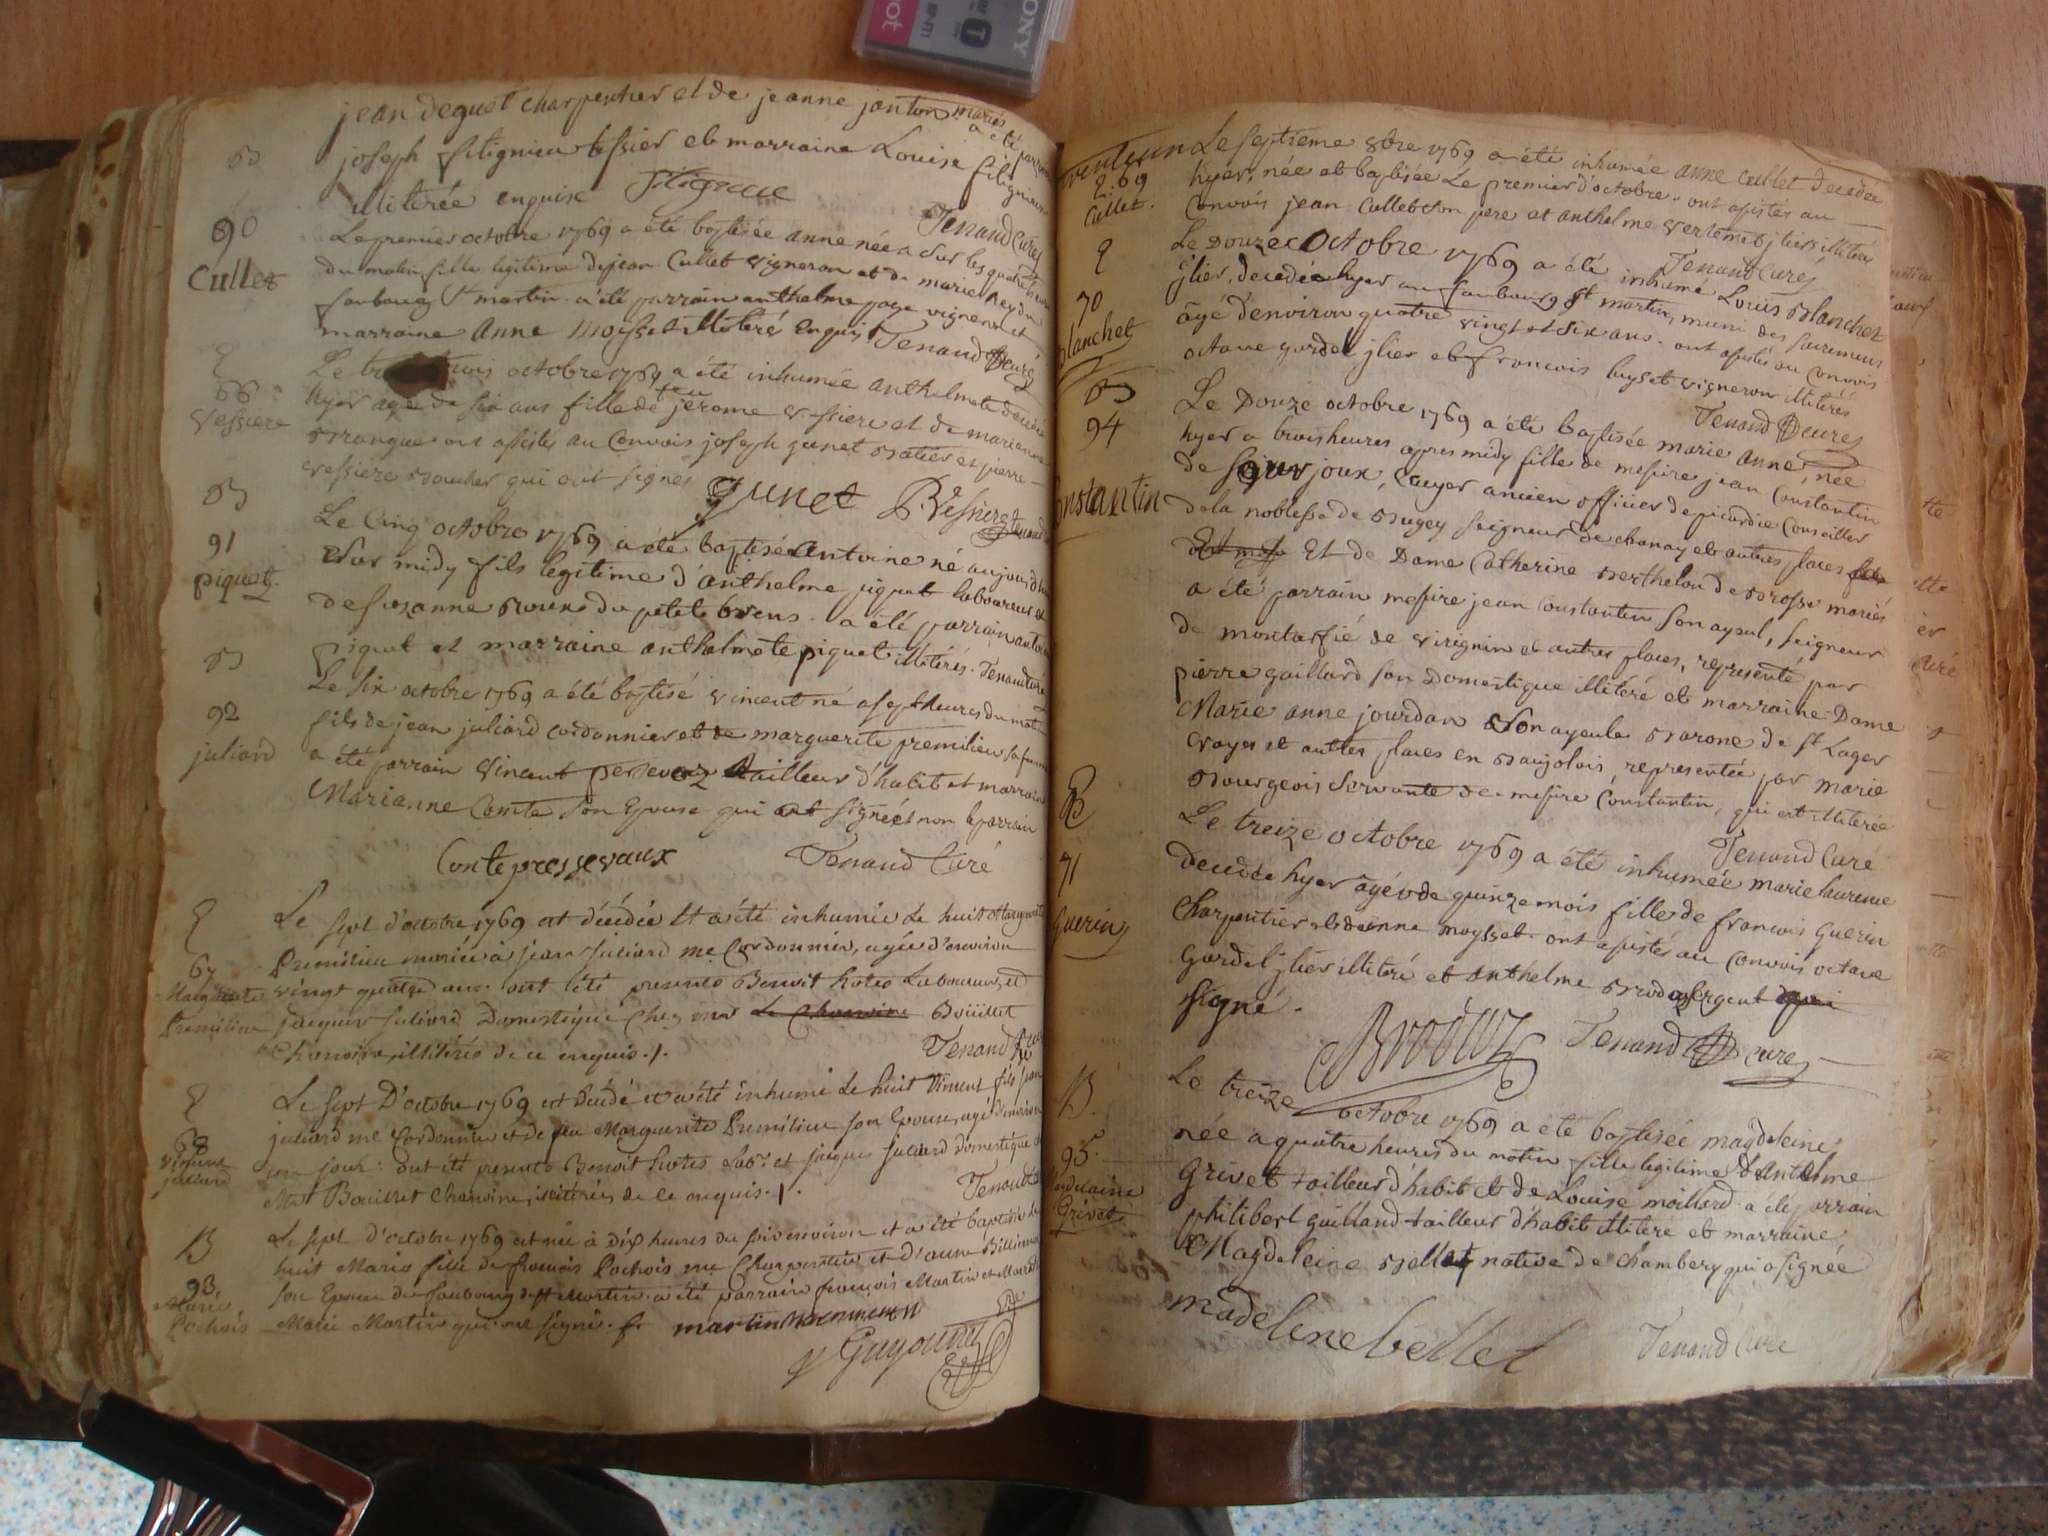 SONY
jean deguet charpentier et de jeanne janton mariés
a été parrain
joseph filignieu tessier et marraine Louise filignieu
illiterée enquise
Tenand Curé
90
Cullet
Le premier octobre 1769 a été baptisée anne née a sur les quatre heures
du matin fille legitime de jean Cullet vigneron et de marie Rey du
faubourg St martin a été parrain anthelme page vigneron et
marraine anne moysset illiteré Enquis Tenand Curé
68
Vessiere
Le trois octobre 1769 a été inhumée anthelmete decedée
hyer agée de six ans fille de feu jerome vessiere et de marianne
ont assistés au Convois joseph junet et pierre
vessiere boucher qui ont signés
junet P. Vessiere Tenand
91
piquet
Le Cinq octobre 1769 a été baptisé antoine né aujourd'hui
sur midy fils legitime d'anthelme piquet laboureur et
de susanne Roux du petit brens a été parrain antoine
piquet et marraine anthelmete piquet illiterés Tenand Curé
92
juliard
Le six octobre 1769 a été baptisé vincent né a sept heures du matin
fils de jean juliard cordonnier et de marguerite premilieu sa femme
a été parrain vincent tailleur d'habit et marraine
Marianne Comte son Epouse qui ont signée non le parrain
Conte pressevaux Tenand Curé
67
Marguerite
Premilieu
Le sept d'octobre 1769 est décédée Et a été inhumée Le huit Marguerite
Premilieu mariée à jean Juliard me Cordonnier, agée d'environ
vingt quatre ans. ont été presents Benoit Laboureur, et
jacques Juliard Domestique chez mr Le Chanoine Boüillet
Chanoine, illiterés de ce enquis./.
Tenand
68
Vincent
juliard
Le sept D'octobre 1769 est Décédé et a été inhumé Le huit Vincent fils jean
juliard me Cordonnier et de feu Marguerite Premilieu son Epouse, agé d'environ
un jour: ont été presents Benoit Labr. et jacques juliard Domestique de
Mr Boüillet Chanoine, illiterés de ce enquis./.
Tenand
B
93
Marie
Pochois
Le sept d'octobre 1769 est née à Dix heures du soir environ et a été baptisée le
huit Marie fille de francois Pochois me Charpentier et d'anne
son Epouse du faubourg de st Martin a été parrain françois Martin et Marraine
Marie Martin qui ont signé.
martin
Guyonnet
2. 69
Cullet.
Le septieme 8bre 1769 a été inhumée anne Cullet decedée
hyer, née et baptisée Le premier d'octobre. ont assistés au
Convois jean Cullet son pere et anthelme jlier illiterés
Tenand Curé
70
Blanchet
Le Douze Octobre 1769 a été inhumé Louis Blanchet
jlier, decedé hyer au faubourg St martin, muni des sacremens
âgé d'environ quatre vingt et six ans. ont assistés au Convois
octave gordel jlier et francois buyset vigneron illiterés
Tenand Curé
94
Constantin
Le Douze octobre 1769 a été baptisée marie anne, née
hyer a trois heures apres midy fille de messire jean Constantin
de surjoux, Ecuyer ancien officier de picardie Conseiller
de la noblesse de Bugey seigneur de chanay et autres places
Et de Dame Catherine Berthelon de Brosse mariés
a été parrain messire jean Constantin son ayeul, seigneur
de montarfié de virignin et autres places, representé par
pierre gaillard son Domestique illiteré et marraine Dame
Marie anne jourdan son ayeule Barone de St Lager
et autres places en Baujolois, representée par marie
Bourgeois servante de messire Constantin, qui est illiterée
Tenand Curé
71
Guerin
Le treize octobre 1769 a été inhumée marie laurence
decedée hyer âgée de quinze mois fille de francois Guerin
Charpentier et de anne moysset. ont assistés au Convois octave
gordel jlier illiteré et anthelme sergent
signé.
Tenand Curé
B.
95.
Magdelaine
Grivet
Le treize octobre 1769 a été baptisée magdeleine
née a quatre heures du matin fille legitime d'Antelme
Grivet tailleur d'habit et de Louise moillard a été parrain
philibert guilland tailleur d'habit illiteré et marraine
Magdeleine Bellet native de Chambery qui a signée
madeleine bellet
Tenand Curé